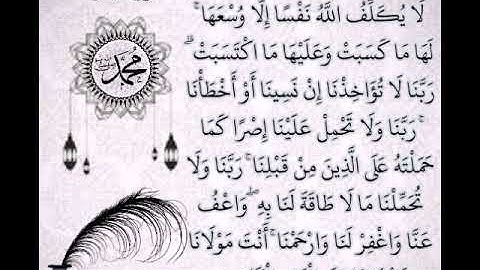 لَا يُكَلِّفُ اللَّهُ نَفْسًا إِلَّا وُسْعَهَا ۚ
لَهَا مَا كَسَبَتْ وَعَلَيْهَا مَا اكْتَسَبَتْ ۗ
رَبَّنَا لَا تُؤَاخِذْنَا إِنْ نَسِينَا أَوْ أَخْطَأْنَا
ۚ رَبَّنَا وَلَا تَحْمِلْ عَلَيْنَا إِصْرًا كَمَا
حَمَلْتَهُ عَلَى الَّذِينَ مِنْ قَبْلِنَا ۚ رَبَّنَا وَلَا
تُحَمِّلْنَا مَا لَا طَاقَةَ لَنَا بِهِ ۖ وَاعْفُ
عَنَّا وَاغْفِرْ لَنَا وَارْحَمْنَا ۚ أَنْتَ مَوْلَانَا
محمد